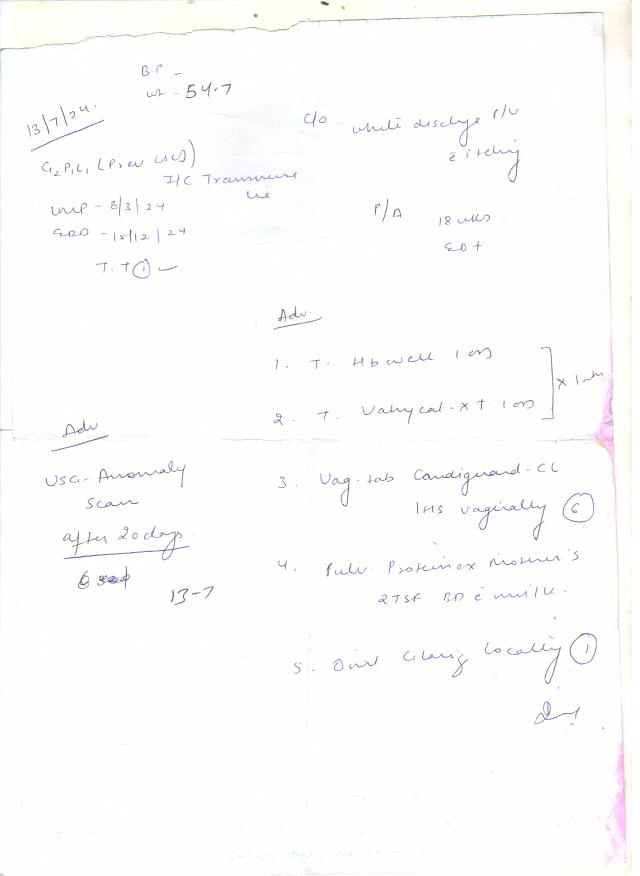 B.P -
wt - 54.7
13/7/24.
C/O white discharge P/V
c̄ itching
G2P1L1 (Prev LSCS)
I/C Transverse
lie
LMP - 8/3/24
EDD - 15/12/24
T.T ①
P/A 18 wks.
Adv.
1. T. Hbwell 1 OD
2. T. Vahycal-XT. 1 OD
Adv
USG - Anomaly
Scan
after 20 days.
13-7
3. Vag. tab Candiguard-CL
1HS vaginally ⑥
4. Pulv. Proteinex Mother's
2TSF BD c̄ milk.
5. Oint locally ①